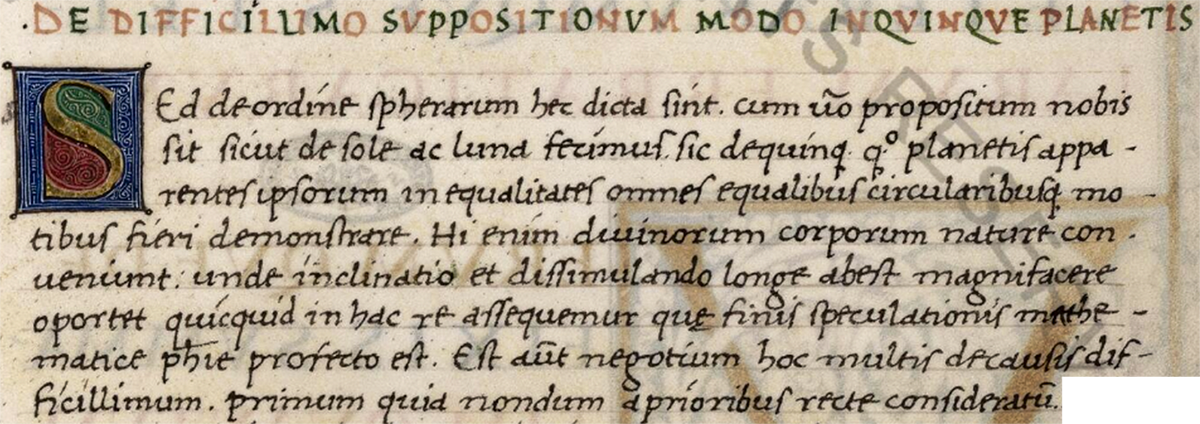 ·DE DIFFICILLIMO SUPPOSITIONUM MODO INQUINQUE PLANETIS
SEd de ordine spherarum hec dicta sint. cum ũo propositum nobis
sit sicut de sole ac luna fecimus. sic dequinq̨ q̊ planetis appa-
rentes ipsorum inequalitates omnes equalibus circularibusq̨ mo-
tibus fieri demonstrare. Hi enim diuinorum corporum nature con-
ueniunt. unde inclinatio et dissimulando longe abest magnifacere
oportet quicquid in hac re assequemur quę finis speculationis mathe-
matice phi̅e profecto est. Est aũt negotium hoc multis decausis dif-
ficillimum. primum quia nondum aprioribus recte consideratũ.